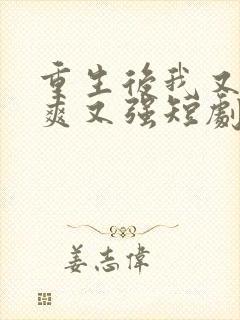 重生後我又
爽又強短劇
姜志偉